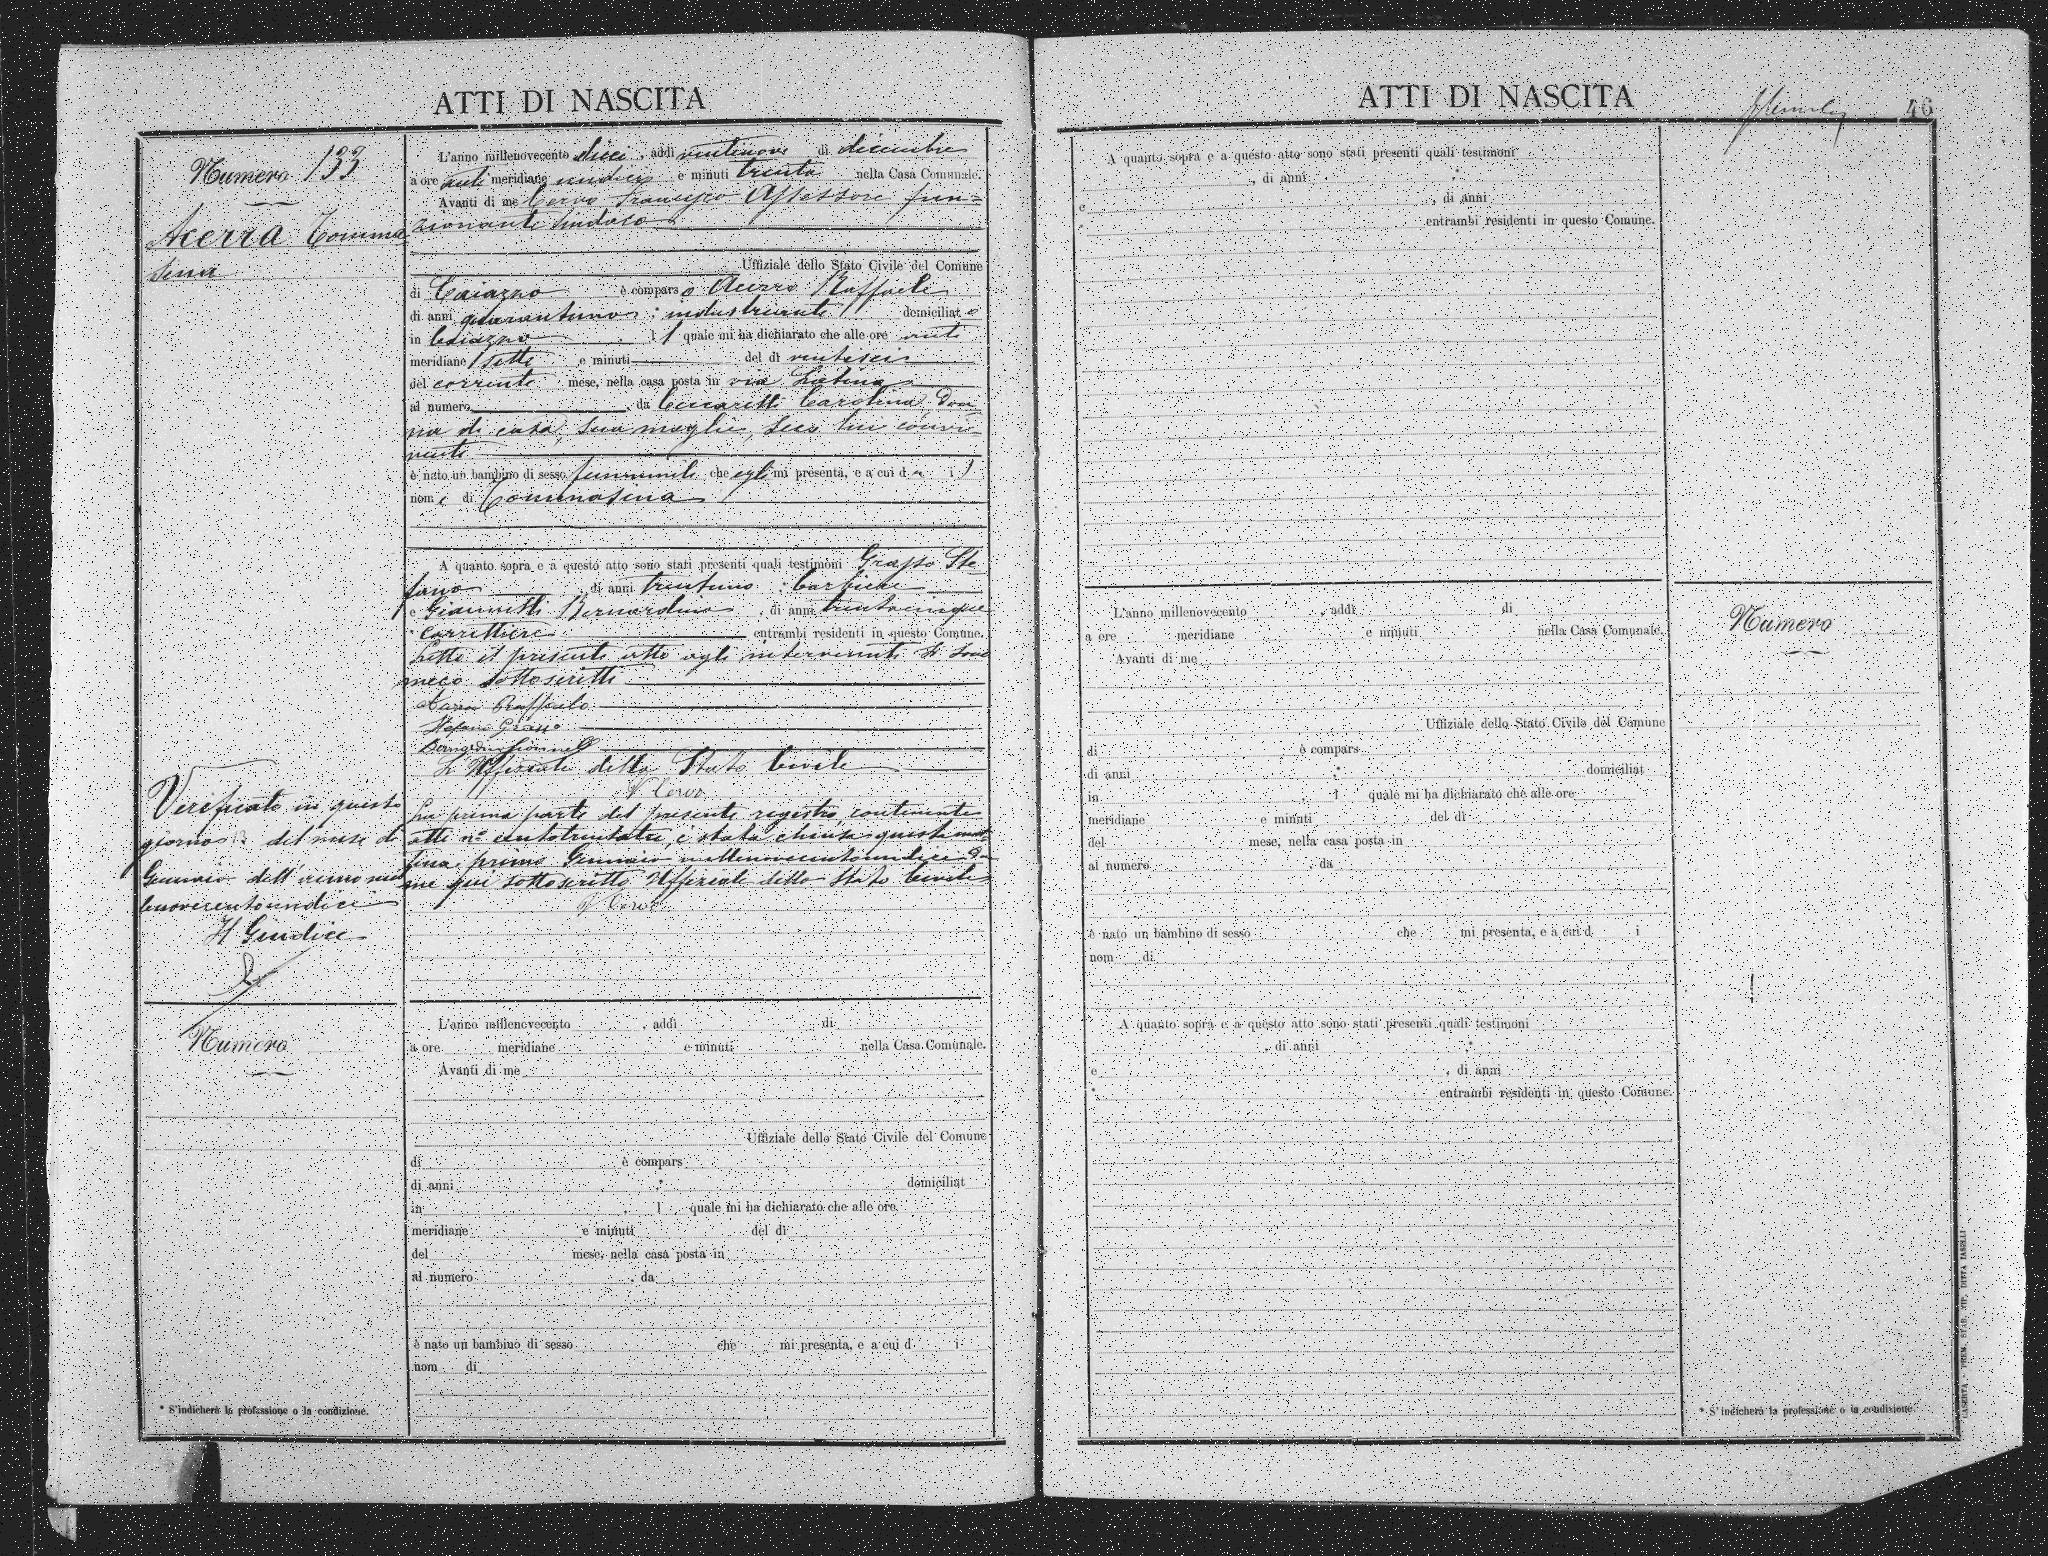 ATTI DI NASCITA
Numero 133
Acerra Tomma
sina
L'anno millenovecento dieci, addì ventinove di dicembre
a ore anti meridiane undici e minuti trenta nella Casa Comunale.
Avanti di me Cervo Francesco Assessore fun=
zionante Sindaco
Uffiziale dello Stato Civile del Comune
di Caiazzo è comparso Acerra Raffaele
di anni quarantuno, industriante domiciliato
in Caiazzo, il quale mi ha dichiarato che alle ore anti
meridiane sette e minuti del dì ventisei
del corrente mese, nella casa posta in via Latina
al numero, da Carolina, Don
na di casa, sua moglie, seco lui convi
vente
è nato un bambino di sesso femminile che egli mi presenta, e a cui dà il
nome di Tommasina
A quanto sopra e a questo atto sono stati presenti quali testimoni Grasso Ste
fano, di anni trentuno, barbiere
e Giannelli Bernardino, di anni trentacinque
carrettiere entrambi residenti in questo Comune.
Letto il presente atto agli intervenuti si sono
meco sottoscritti
Raffaele
Stefano Grasso
Bernardino Giannelli
L'Uffiziale dello Stato Civile
F Cervo
La prima parte del presente registro, contenente
atti n° centotrentatre, è stata chiusa questa mat
tina primo Gennaio millenovecentoundici da
me qui sottoscritto Uffiziale dello Stato Civile
F Cervo
Verificato in questo
giorno 13 del mese di
Gennaio dell'anno mil
lenovecentoundici
Il Giudice
Numero
L'anno millenovecento, addì di
a ore meridiane e minuti nella Casa Comunale.
Avanti di me
Uffiziale dello Stato Civile del Comune
di è compars
di anni * domiciliat
in, l quale mi ha dichiarato che alle ore
meridiane e minuti del dì
del mese, nella casa posta in
al numero, da
è nato un bambino di sesso che mi presenta, e a cui d i
nom di
* S'indicherà la professione o la condizione.
ATTI DI NASCITA
46
A quanto sopra e a questo atto sono stati presenti quali testimoni
, di anni *
e, di anni
entrambi residenti in questo Comune.
Numero
L'anno millenovecento, addì di
a ore meridiane e minuti nella Casa Comunale.
Avanti di me
Uffiziale dello Stato Civile del Comune
di è compars
di anni * domiciliat
in, l quale mi ha dichiarato che alle ore
meridiane e minuti del dì
del mese, nella casa posta in
al numero, da
è nato un bambino di sesso che mi presenta, e a cui d i
nom di
A quanto sopra e a questo atto sono stati presenti quali testimoni
, di anni *
e, di anni
* entrambi residenti in questo Comune.
* S'indicherà la professione o la condizione.
CASERTA - PREM. STAB. TIP. DITTA IASELLI